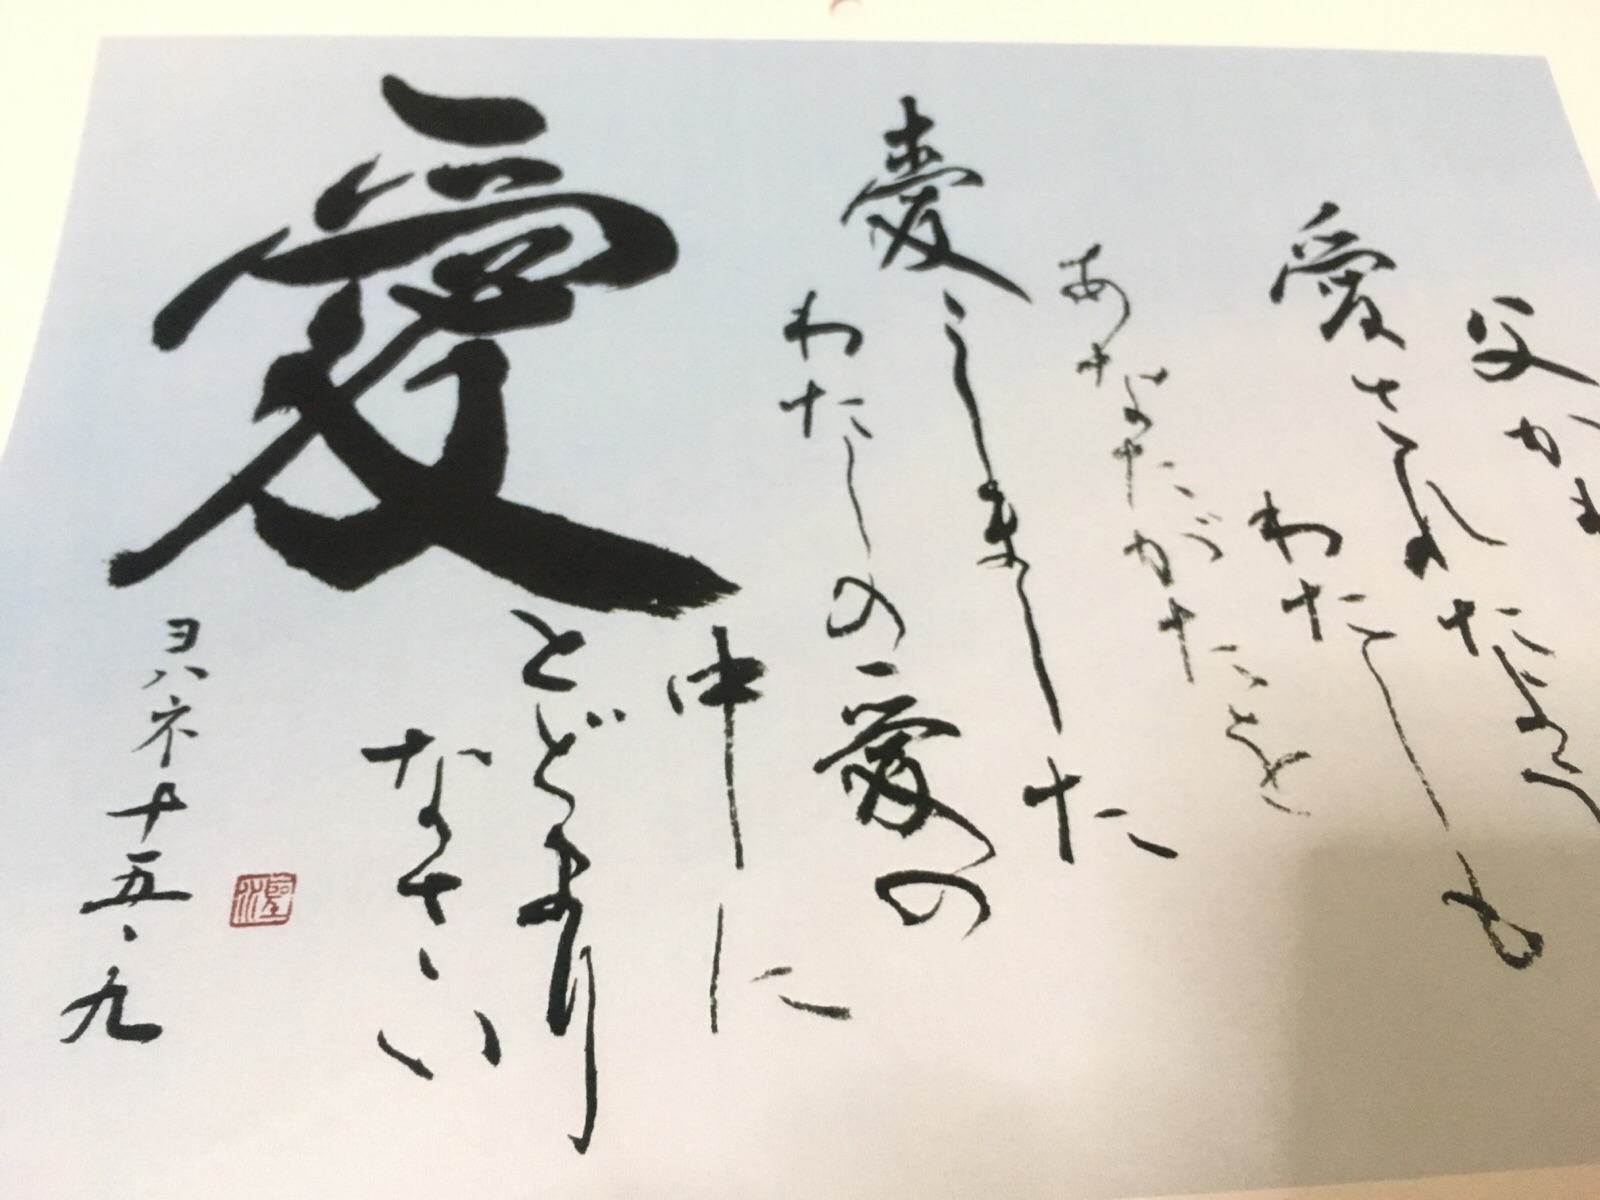 父が
愛されたよう
わたしも
あなたがたを
愛しました
わたしの愛の
中に
とどまり
なさい
愛
ヨハネ十五・九